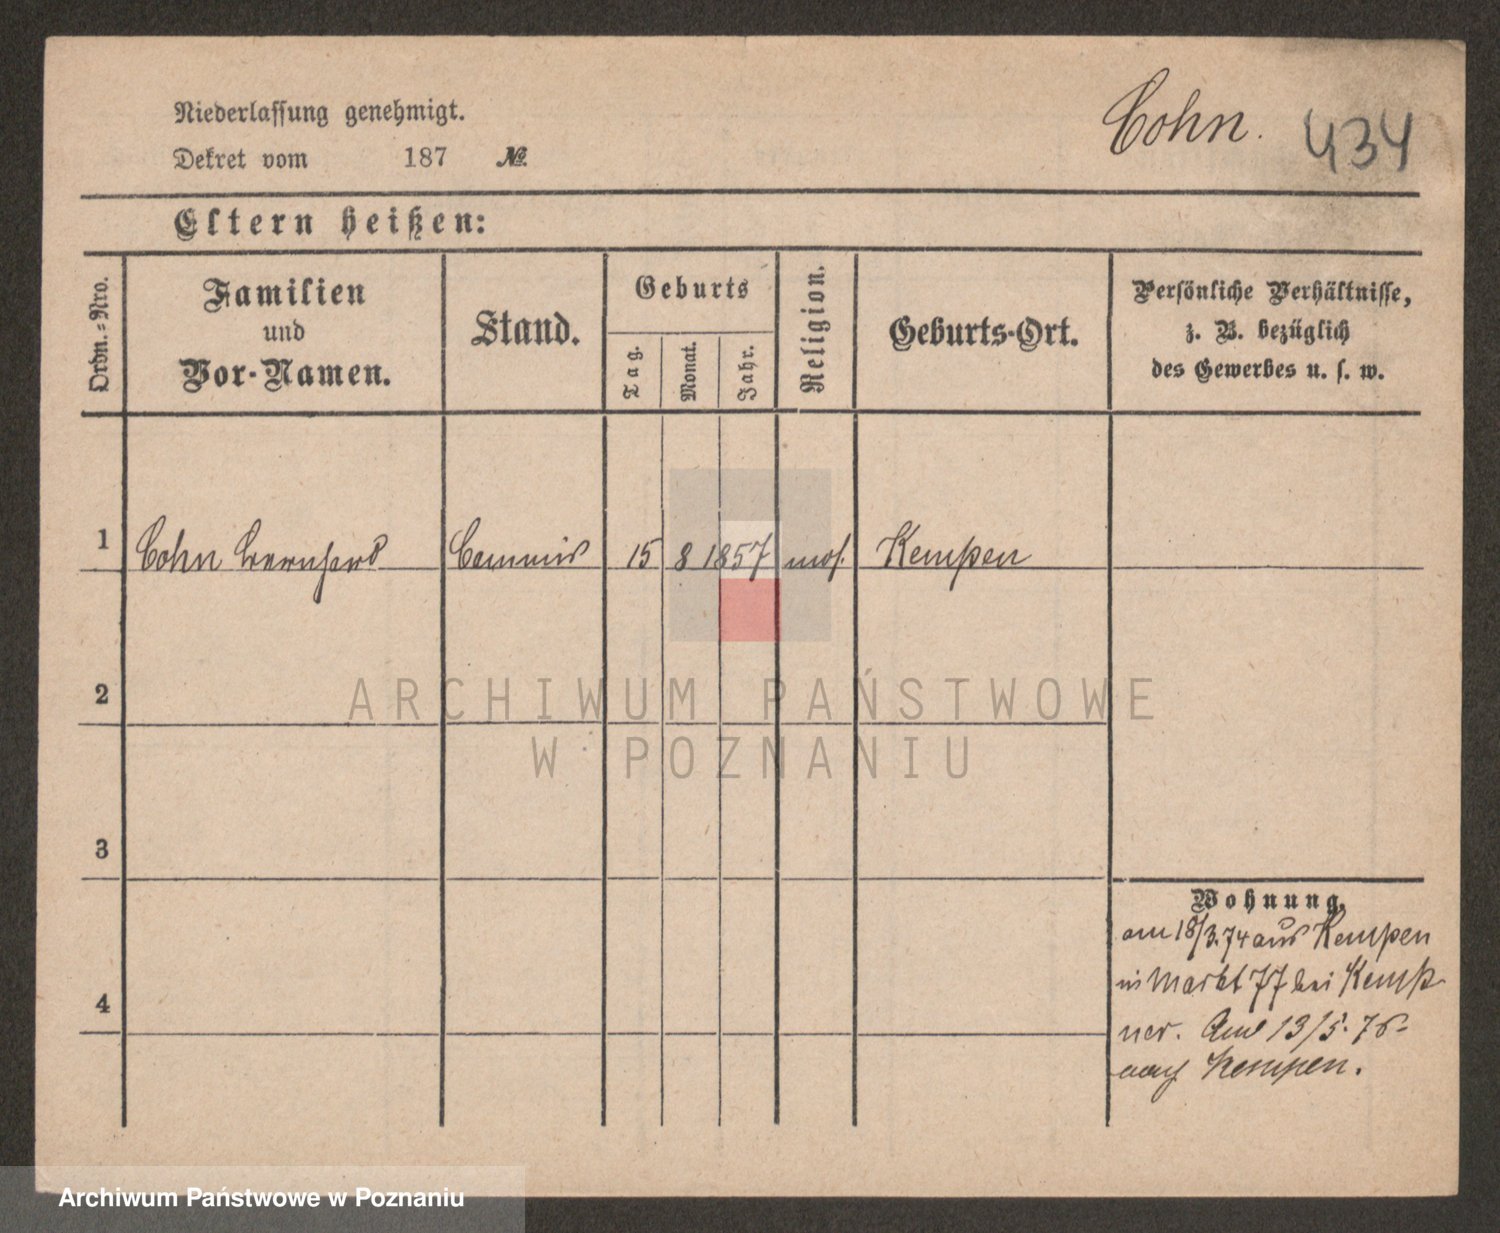 Niederlassung genehmigt.
Cohn. 434
Dekret vom 187 №
Eltern heißen:
Ordn.-Nro.
Familien
und
Vor-Namen.
Stand.
Geburts
Tag.
Monat.
Jahr.
Religion.
Geburts-Ort.
Persönliche Verhältnisse,
z. B. bezüglich
des Gewerbes u. s. w.
1 Cohn Bernhard Commis 15 8 1857 mos. Kempen
2
3
4
Wohnung.
am 18/3.74 aus Kempen
in Markt 77 bei Kemp
ner. And 13/5. 76
nach Kempen.
ARCHIWUM PAŃSTWOWE
W POZNANIU
Archiwum Państwowe w Poznaniu